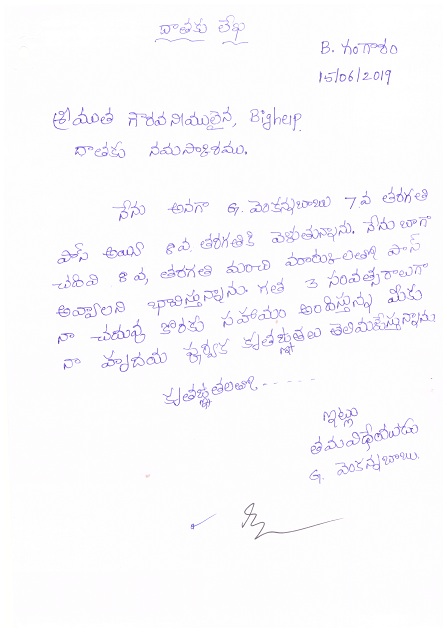 దాతకు లేఖ
B. గంగారం
15/06/2019
శ్రీమత గౌరవనీయులైన, Bighelp
దాతకు నమస్కారము.
నేను అనగా G. వెంకన్నబాబు 7వ తరగతి
పాస్ అయి 8వ తరగతికి వెళుతున్నాను. నేను బాగా
చదివి 8వ తరగతి మంచి మార్కులతో పాస్
అవ్వాలని భావిస్తున్నాను. గత 3 సంవత్సరాలుగా
నా చదువు కొరకు సహాయం అందిస్తున్న మీకు
నా హృదయ పూర్వక కృతజ్ఞతలు తెలియజేస్తున్నాను
కృతజ్ఞతలతో - - - - -
ఇట్లు
తమ విధేయుడు
G. వెంకన్నబాబు.